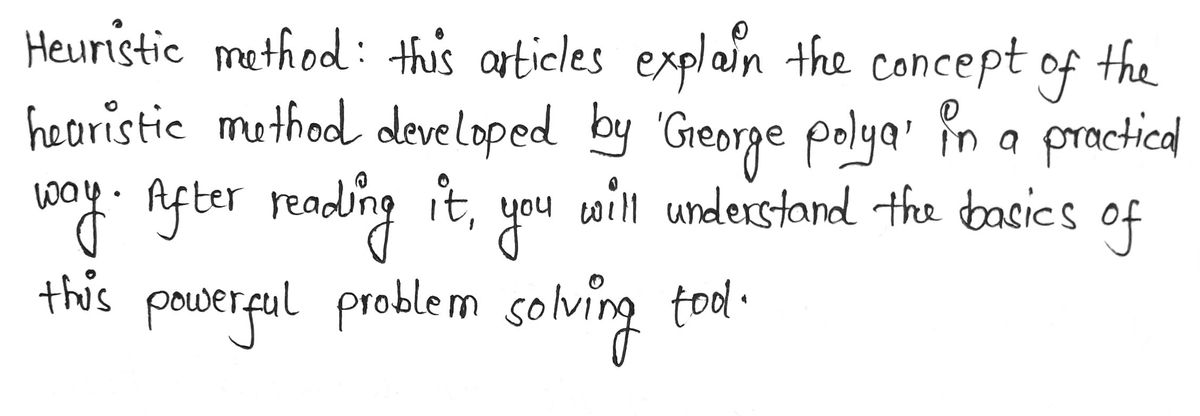 Heuristic method: this articles explain the concept of the
hearistic method developed by 'George polya' in a practical
way. After reading it, you will understand the basics of
this powerful problem solving tool.